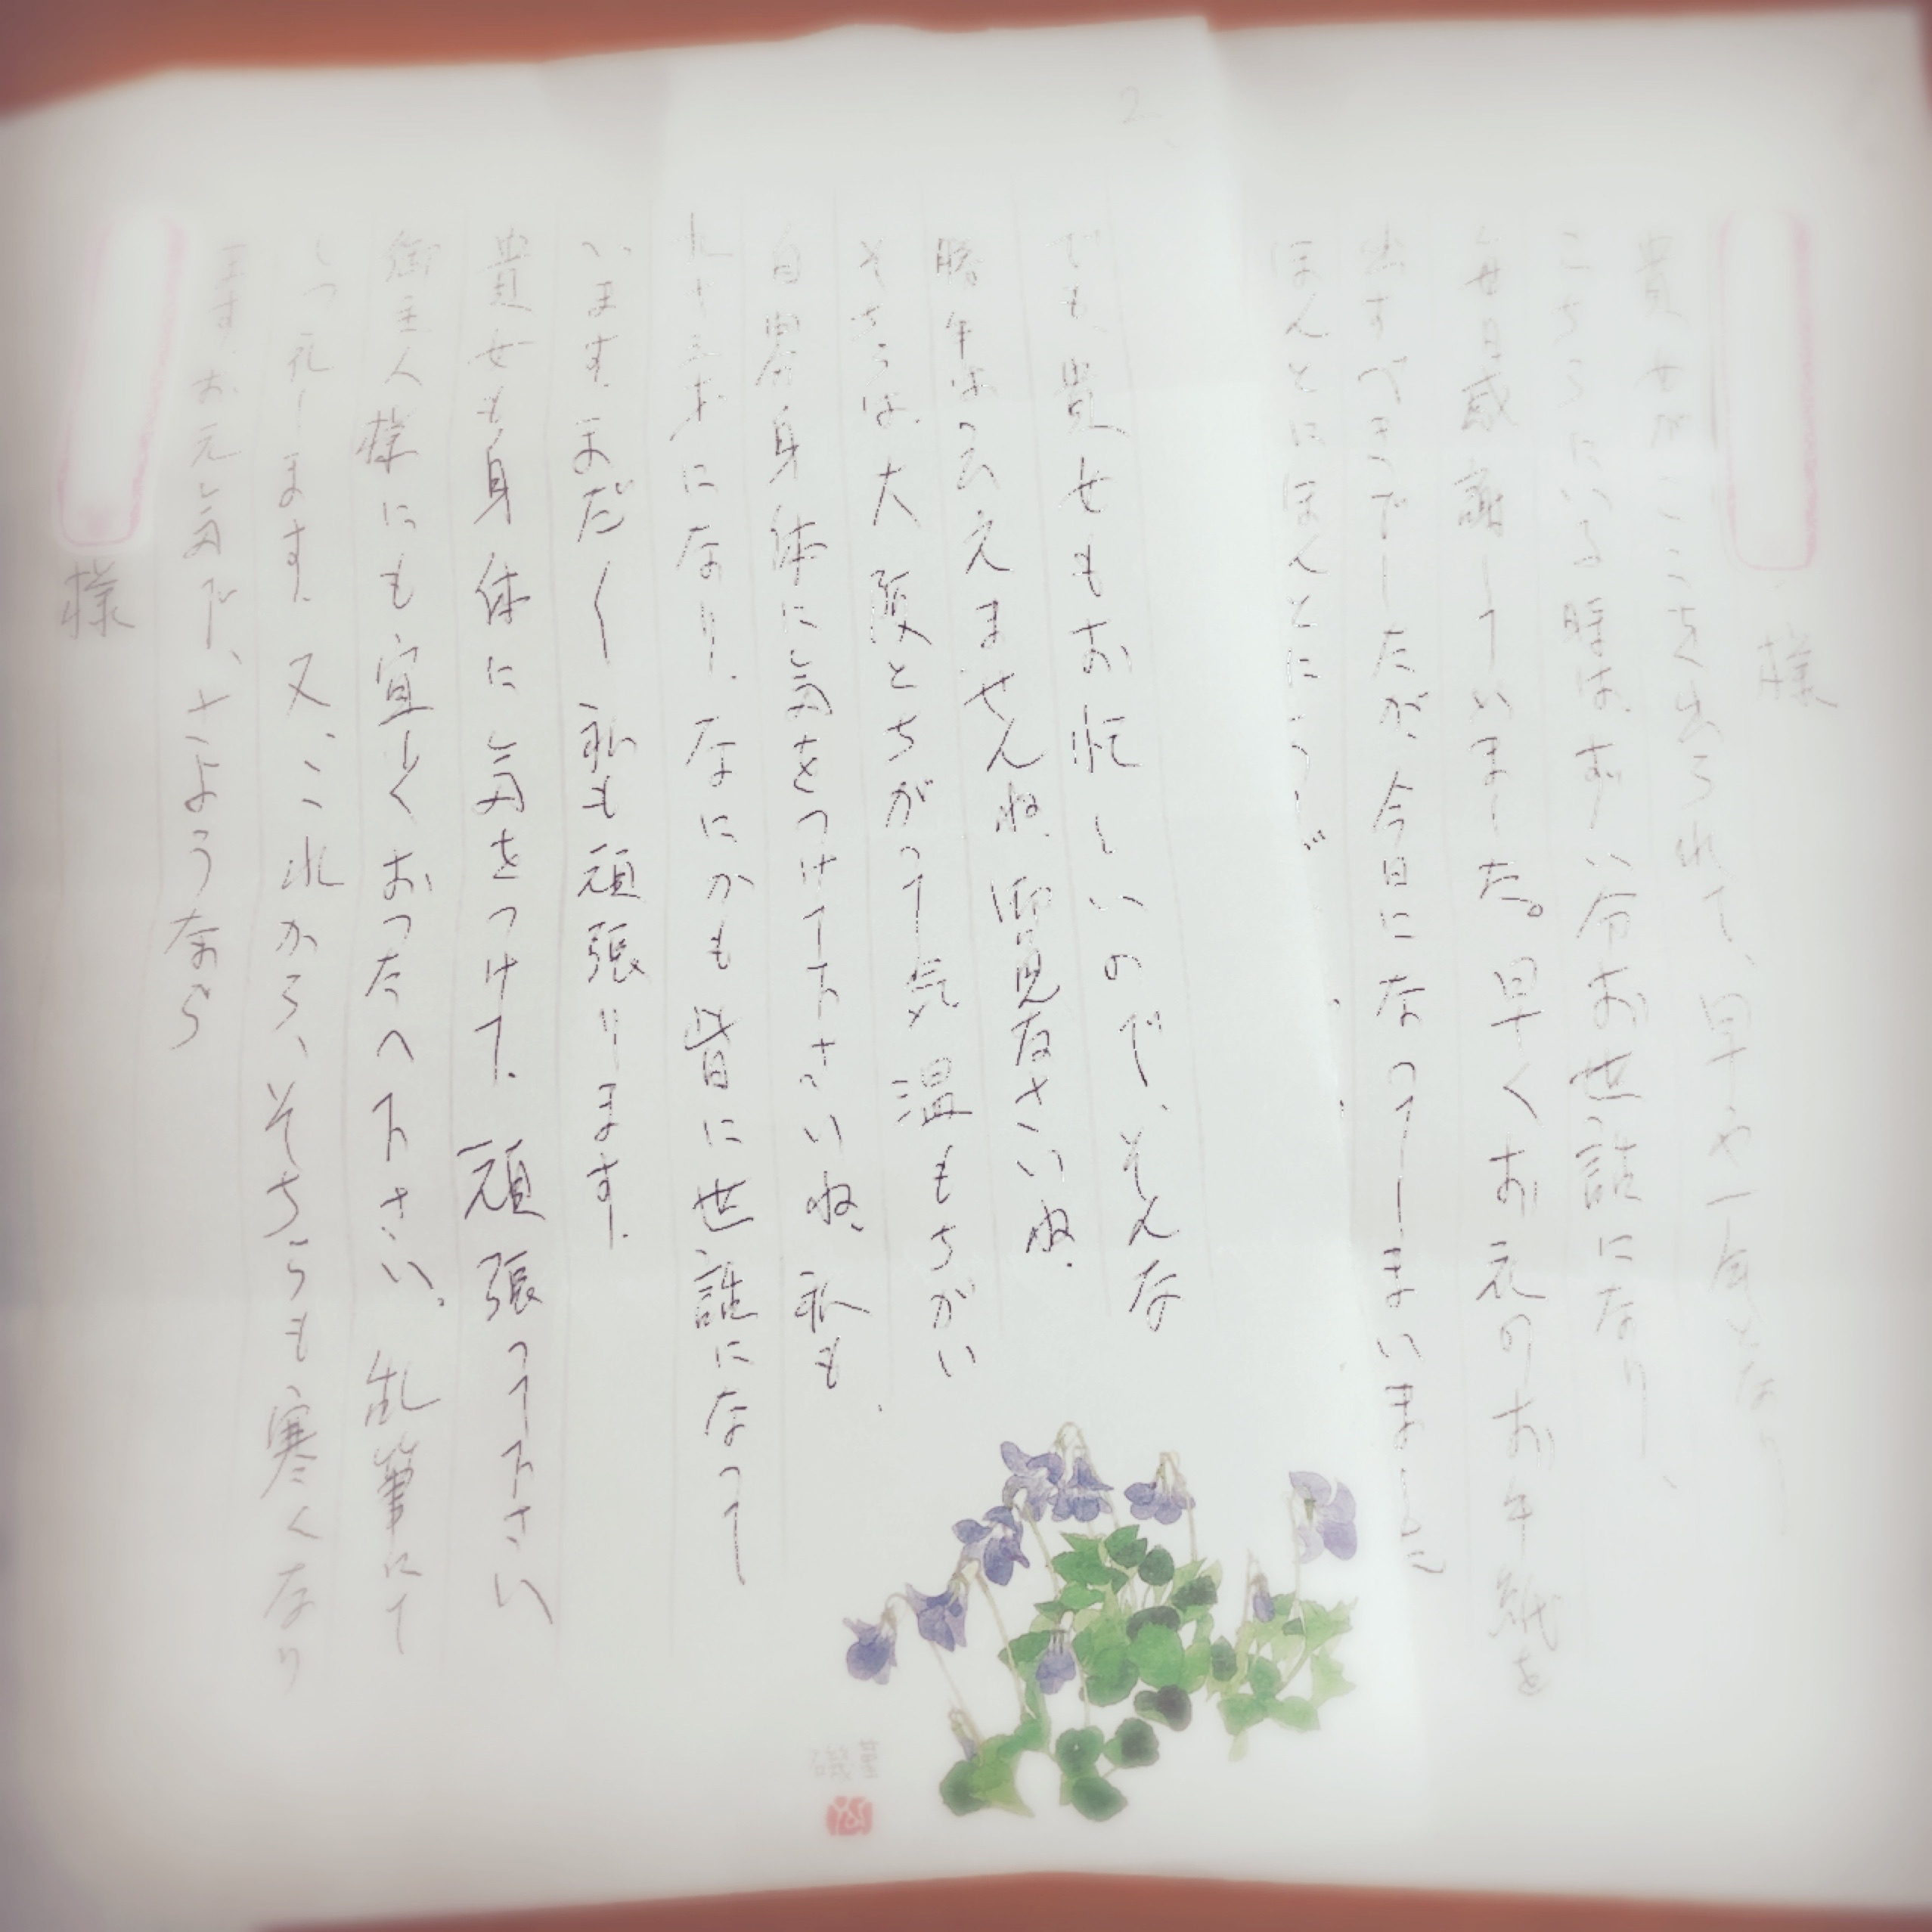 様
貴女がここを出られて、早や一年となり
こちらにいる時は、ずい分お世話になり、
毎日感謝していました。早くお礼のお手紙を
出すべきでしたが、今日になってしまいました
ほんとにほんとに
2
でも、貴女もお忙しいので、そんな
勝手は云えませんね、御免なさいね、
そちらは、大変とちがって気温もちがい
自分身体に気をつけて下さいね、私も
九十三才になり、なにかも皆に世話になって
います、まだ〱私も頑張ります、
貴女も身体に気をつけて、頑張って下さい
御主人様にも宜しくおつたへ下さい。乱筆にて
しつ礼します、又、これから、そちらも寒くなり
ます、お元気で、さようなら
様
菫
磯